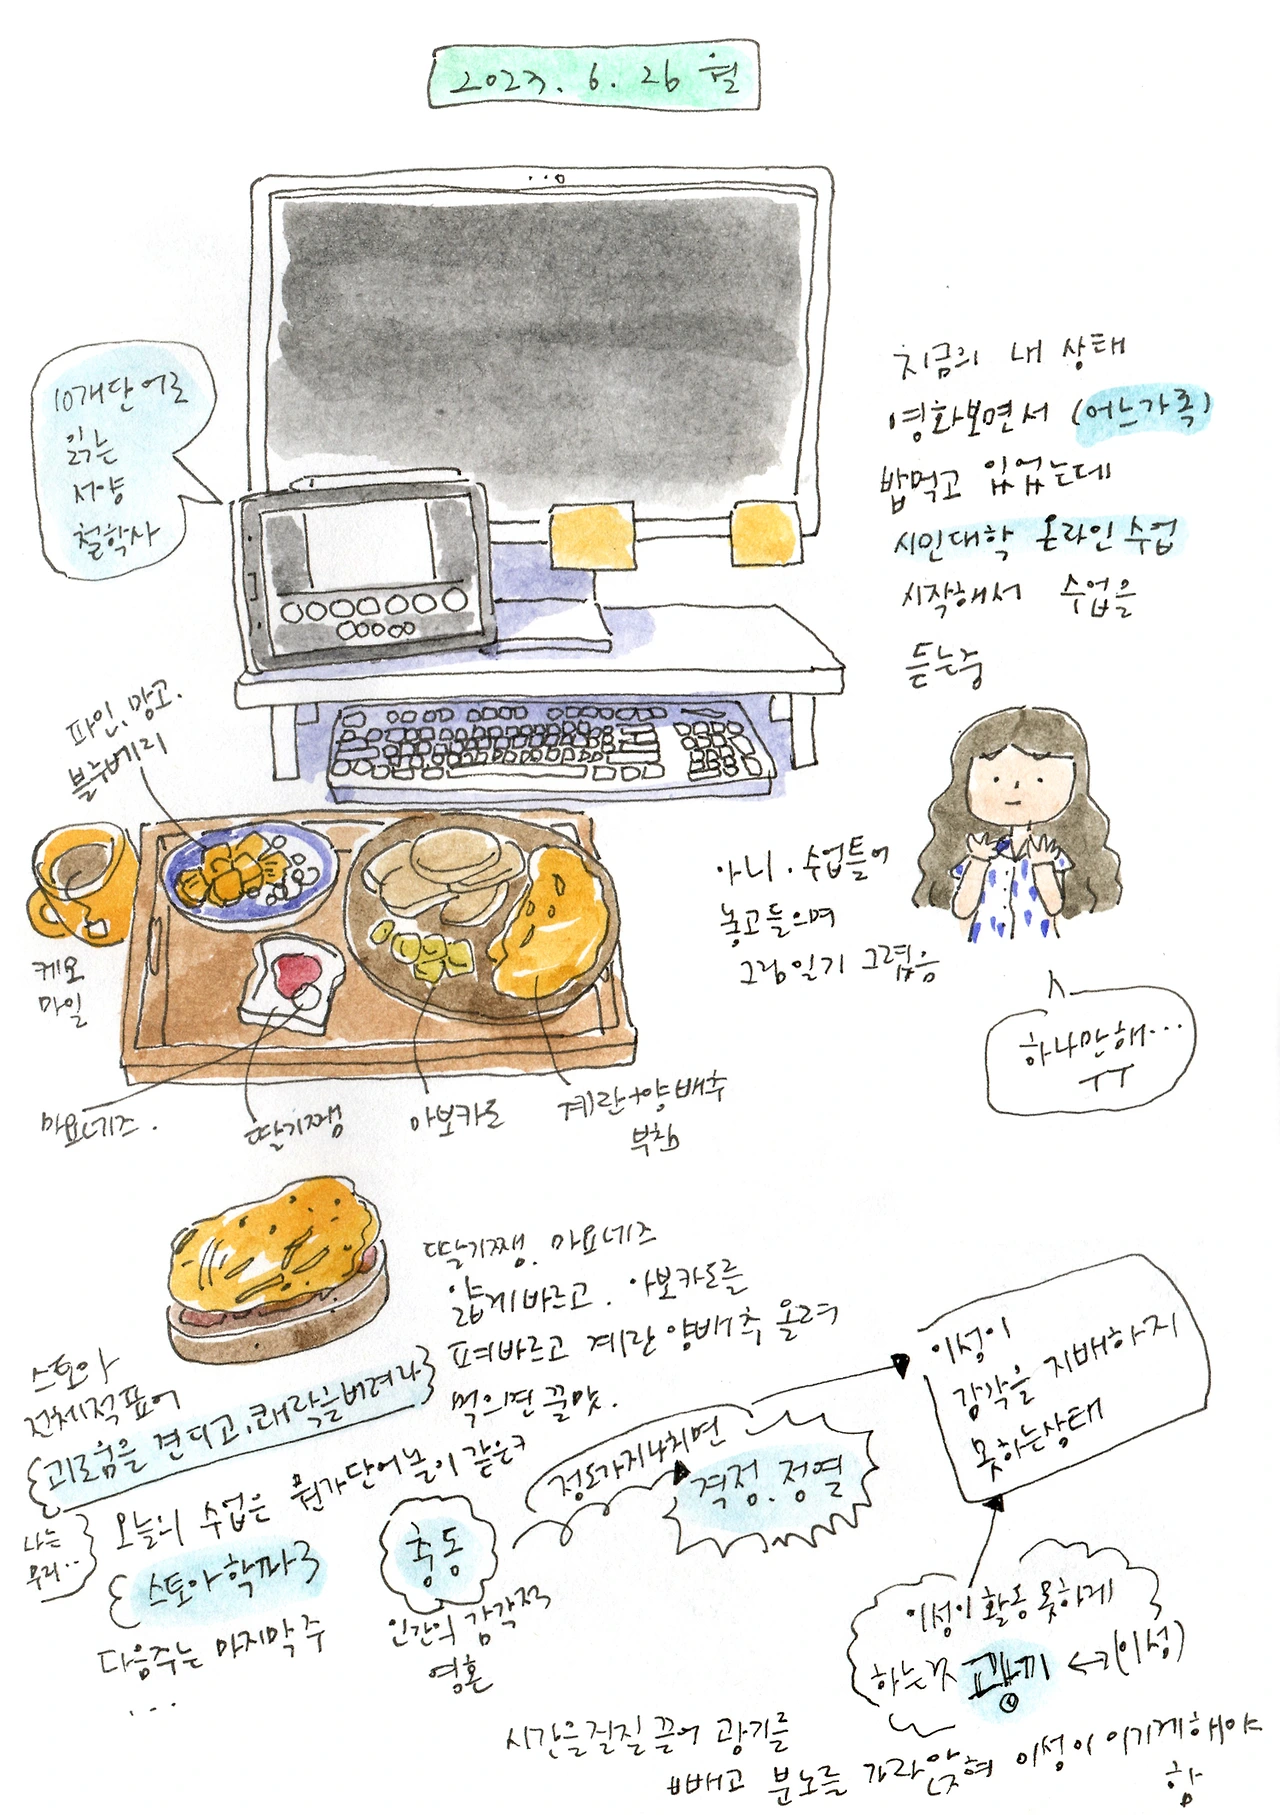 2023. 6. 26 월
10개단어로
읽는
서양
철학사
지금의 내 상태
영화보면서 (어느가족)
밥먹고 있었는데
시인대학 온라인수업
시작해서 수업을
듣는중
파인.망고.
블루베리
케모
마일
아니. 수업틀어
놓고들으며
그림일기 그렸음
하나만해...
ㅜㅜ
마요네즈.
딸기쨈
아보카도
계란+양배추
부침
딸기쨈. 마요네즈
얇게바르고. 아보카도를
펴바르고 계란 양배추 올려
먹으면 꿀맛.
스토아
전체적표어
{괴로움을 견디고, 쾌락을버려라}
나는
무리..}
오늘의 수업은 뭔가단어놀이 같은ㅋ
{스토아학파}
다음주는 마지막주
...
충동
인간의 감각적
영혼
정도가지나치면
격정.정열
이성이
감각을 지배하지
못하는상태
이성이활동못하게
하는것 광끼 ← (이성)
시간을질질끌어 광기를
빼고 분노를 가라앉혀 이성이이기게해야
함